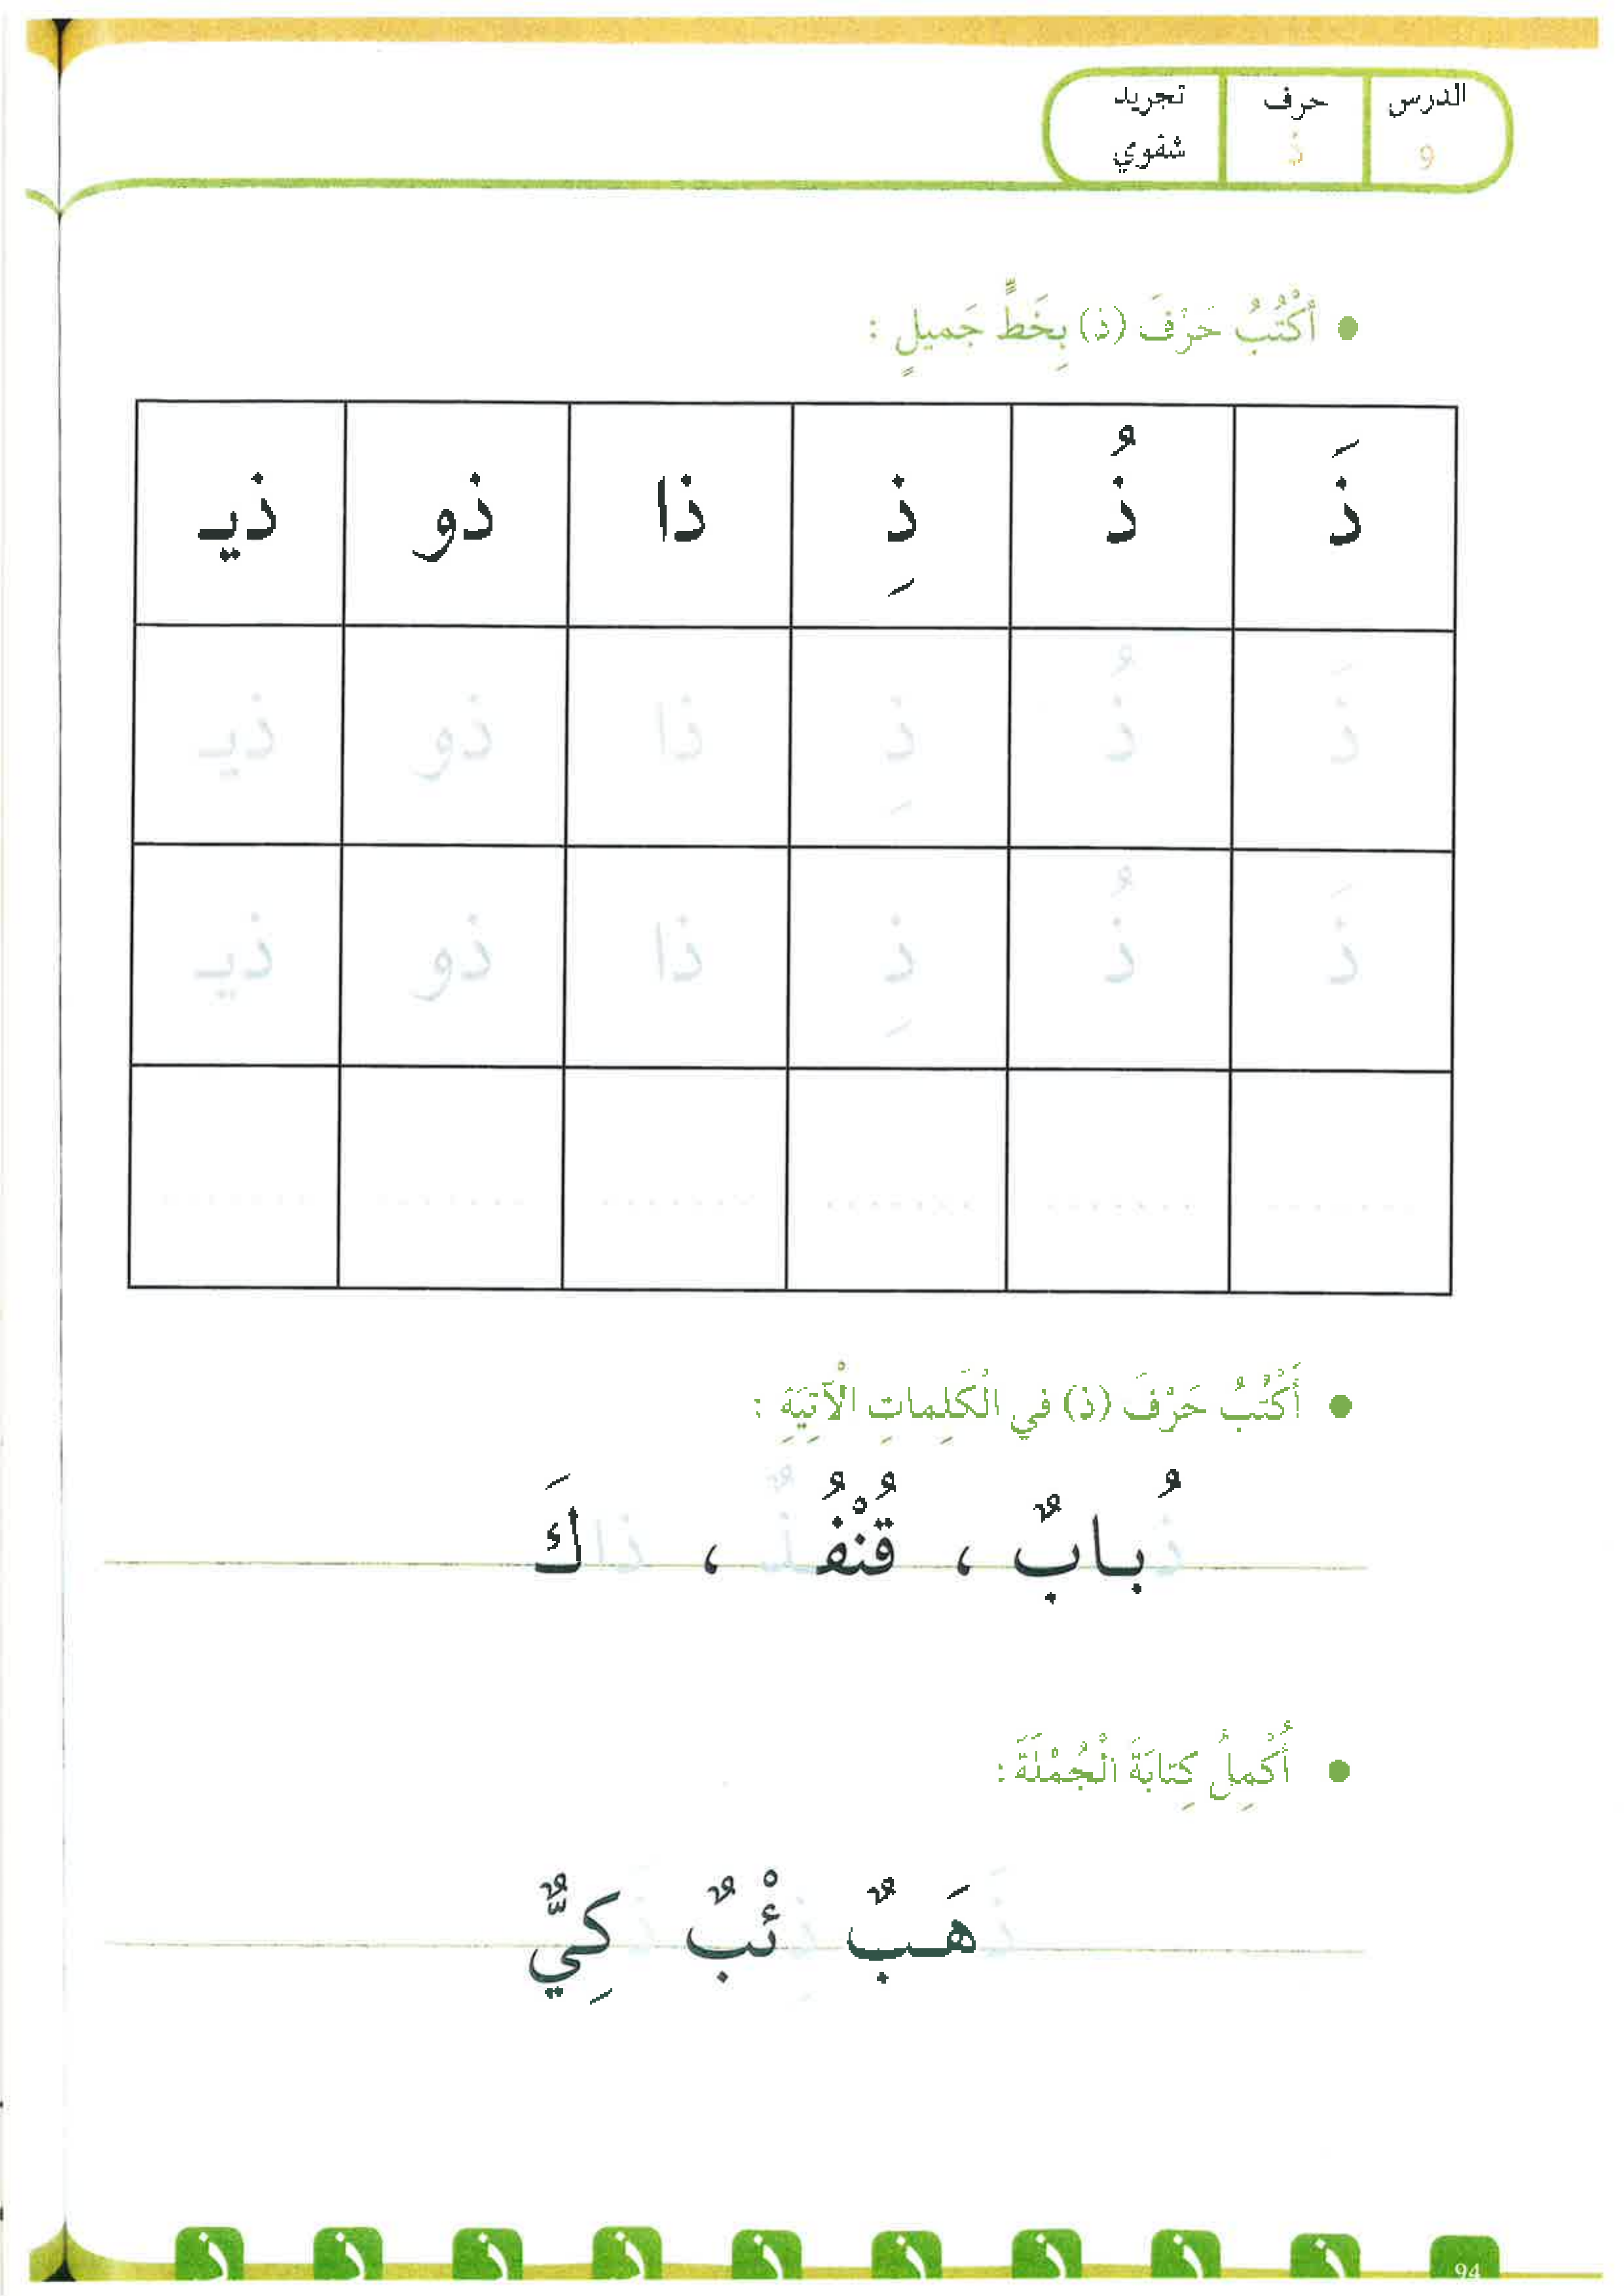 الدرس حرف تجريد
9 ذ شفوي
● أَكْتُبُ حَرْفَ (ذ) بِخَطٍّ جَميلٍ :
ذَ ذُ ذِ ذا ذو ذيـ
ذَ ذُ ذِ ذا ذو ذيـ
ذَ ذُ ذِ ذا ذو ذيـ
● أَكْتُبُ حَرْفَ (ذ) في الْكَلِماتِ الْآتِيَةِ :
ذُبابٌ ، قُنْفُـذٌ ، ذاكَ
● أُكْمِلُ كِتابَةَ الْجُمْلَةَ :
ذَهَـبٌ ذِئْبٌ ذَكِيٌّ
ذ ذ ذ ذ ذ ذ ذ ذ ذ 94